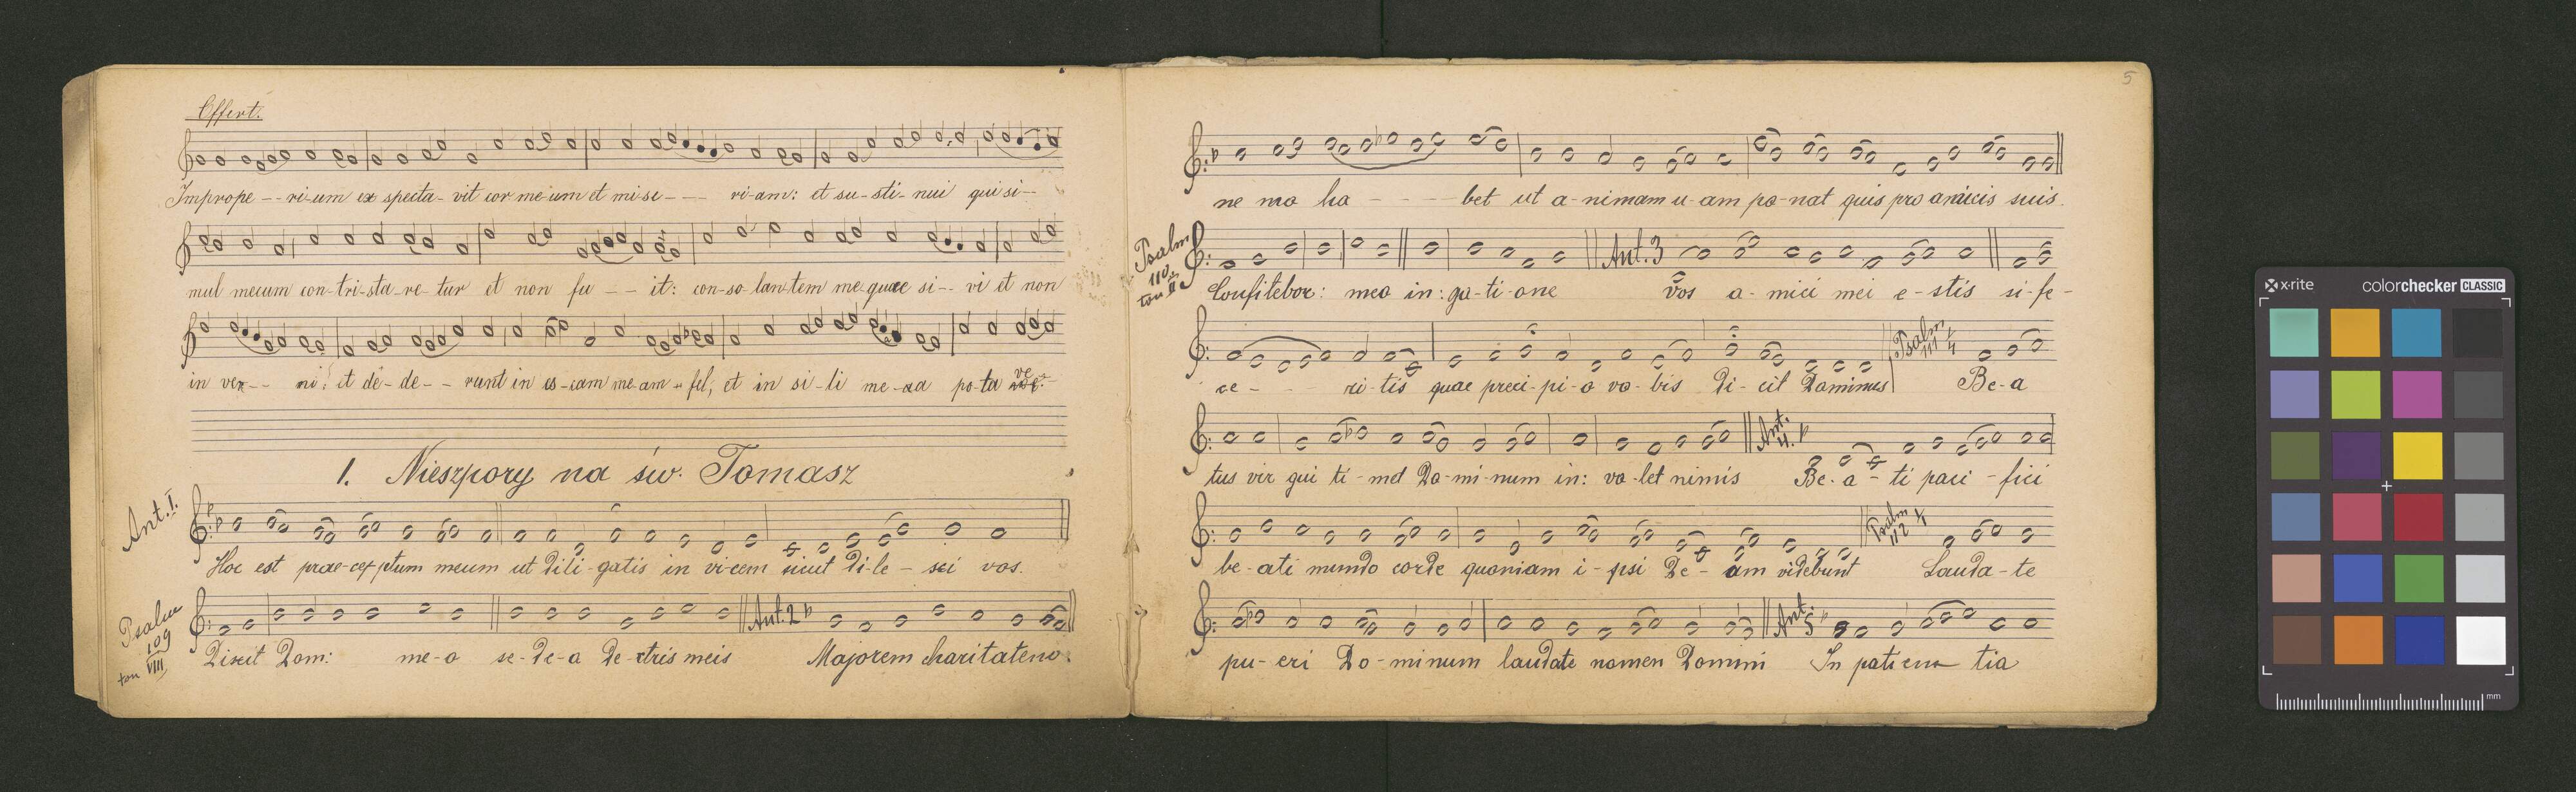 Offert.
Imprope -- ri-um ex specta- vit cor me um et mi-se --- ri-am: et su-sti-nui qui si--
mul mecum con-tri-sta-re-tur et non fu -- it: con-so-lan-tem me quae si-- vi et non
in ven-- ni: et de-de-- runt in es-cam me-am - fel, et in si-ti me-aa po-ta ve
1. Nieszpory na św. Tomasz
Ant. I.
Hoc est prae-cep ptum meum ut dili-gatis in vi-cem sicut di-le - xi vos.
Psalm 109 ton VIII
Dixit Dom: me-o se-de-a de-xtris meis Ant. 2 Majorem charitatem
5
ne mo ha - - - - bet ut a-nimam u-am po-nat quis pro amicis suis.
Psalm 110 ton II
Confitebor: meo in: ga-ti-one Ant. 3 vos a-mici mei e-stis si-fe-
ce - - - ri-tis quae preci-pi-o vo-bis di-cit Dominus Psalm 111 4 Be-a
tus vir qui ti-met Do-mi-num in: vo-let nimis Ant. 4. Be-a - ti paci - fici
be-ati mundo corde quoniam i-psi De- um videbunt Psalm 112 4 Lauda-te
pu-eri Do-minum laudate nomen Domini Ant. 5 In patien tia
x-rite colorchecker CLASSIC
mm